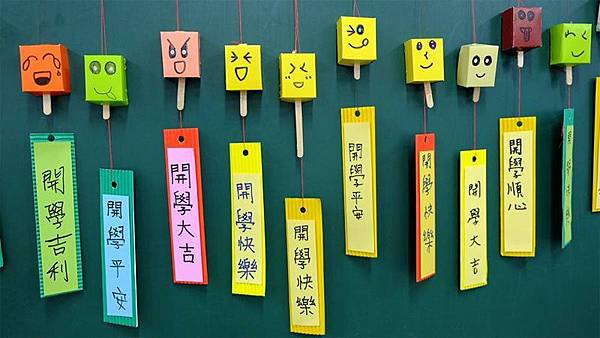 開學吉利
開學平安
開學大吉
開學快樂
開學快樂
開學平安
開學快樂
開學大吉
開學順心